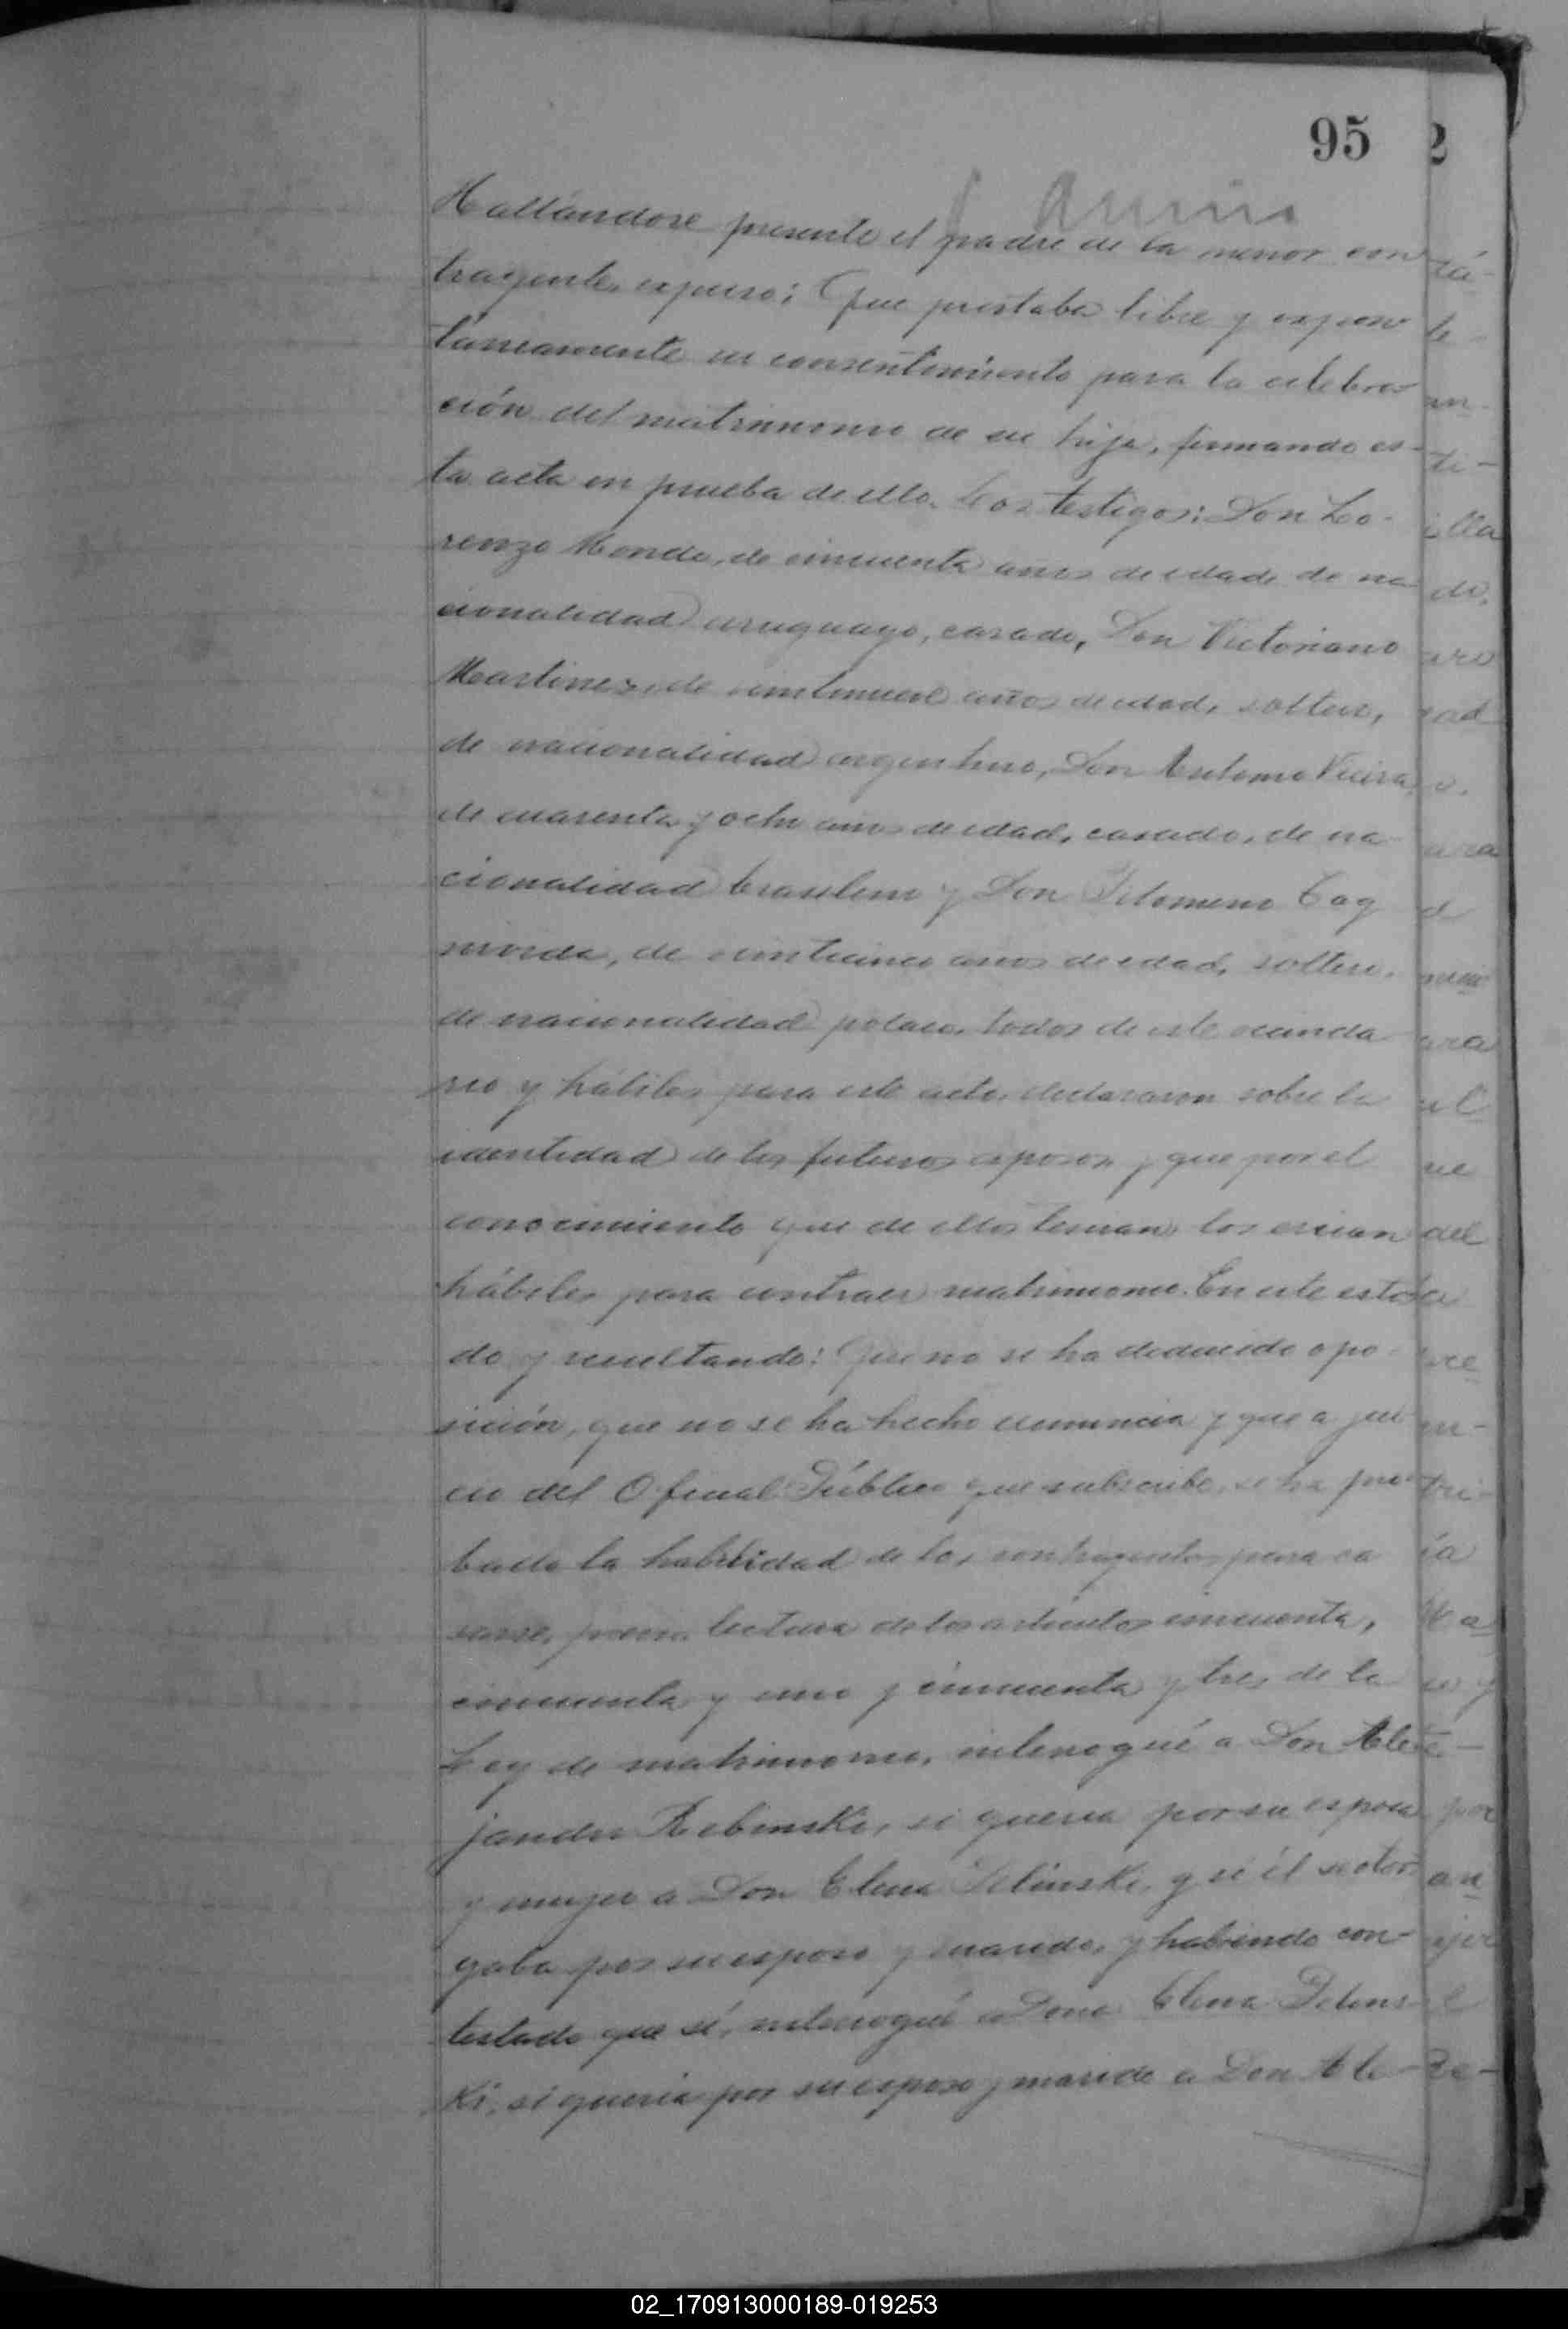 95 2
Hallándose presente el padre de la menor con
trayente, expuso: Que prestaba libre y espon
táneamente su consentimiento para la celebra
ción del matrimonio de su hija, firmando es-
ta acta en prueba de ello. Los testigos: Don Lo-
renzo de cincuenta años de edad, de na
cionalidad uruguayo, casado, Don Victoriano
Martinez, de veintinueve años de edad, soltero,
de nacionalidad argentino, Don Antonio Vieira,
de cuarenta y ocho años de edad, casado, de na
cionalidad brasilero y Don Filomeno
de veinticinco años de edad, soltero,
de nacionalidad polaco, todos de este vecinda
rio y hábiles para este acto, declararon sobre la
identidad de los futuros esposos, y que por el
conocimiento que de ellos tenian, los creian
hábiles para contraer matrimonio. En este esta
do y resultando: Que no se ha deducido opo-
sición, que no se ha hecho denuncia y que a jui
cio del Oficial Público que subscribe, se ha pro-
bado la habilidad de los contrayentes para ca
sarse, previa lectura de los artículos cincuenta,
cincuenta y uno y cincuenta y tres de la
Ley de matrimonio, interrogué a Don Ale
jandro Rebinski, si queria por su esposa
y mujer a Don Elena y si él se otor
gaba por su esposo y marido, y habiendo con-
testado que sí, interrogué a Dona Elena
ki, si queria por su esposo y marido a Don Ale-
02_170913000189-019253